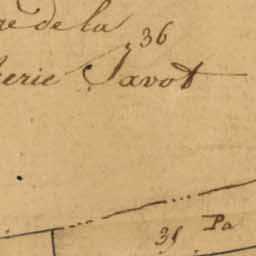 re de la
36
erie Javot
31 Pa